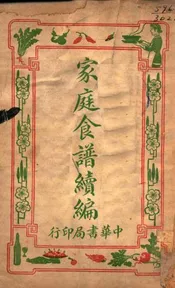 家庭食譜續編
中華書局印行